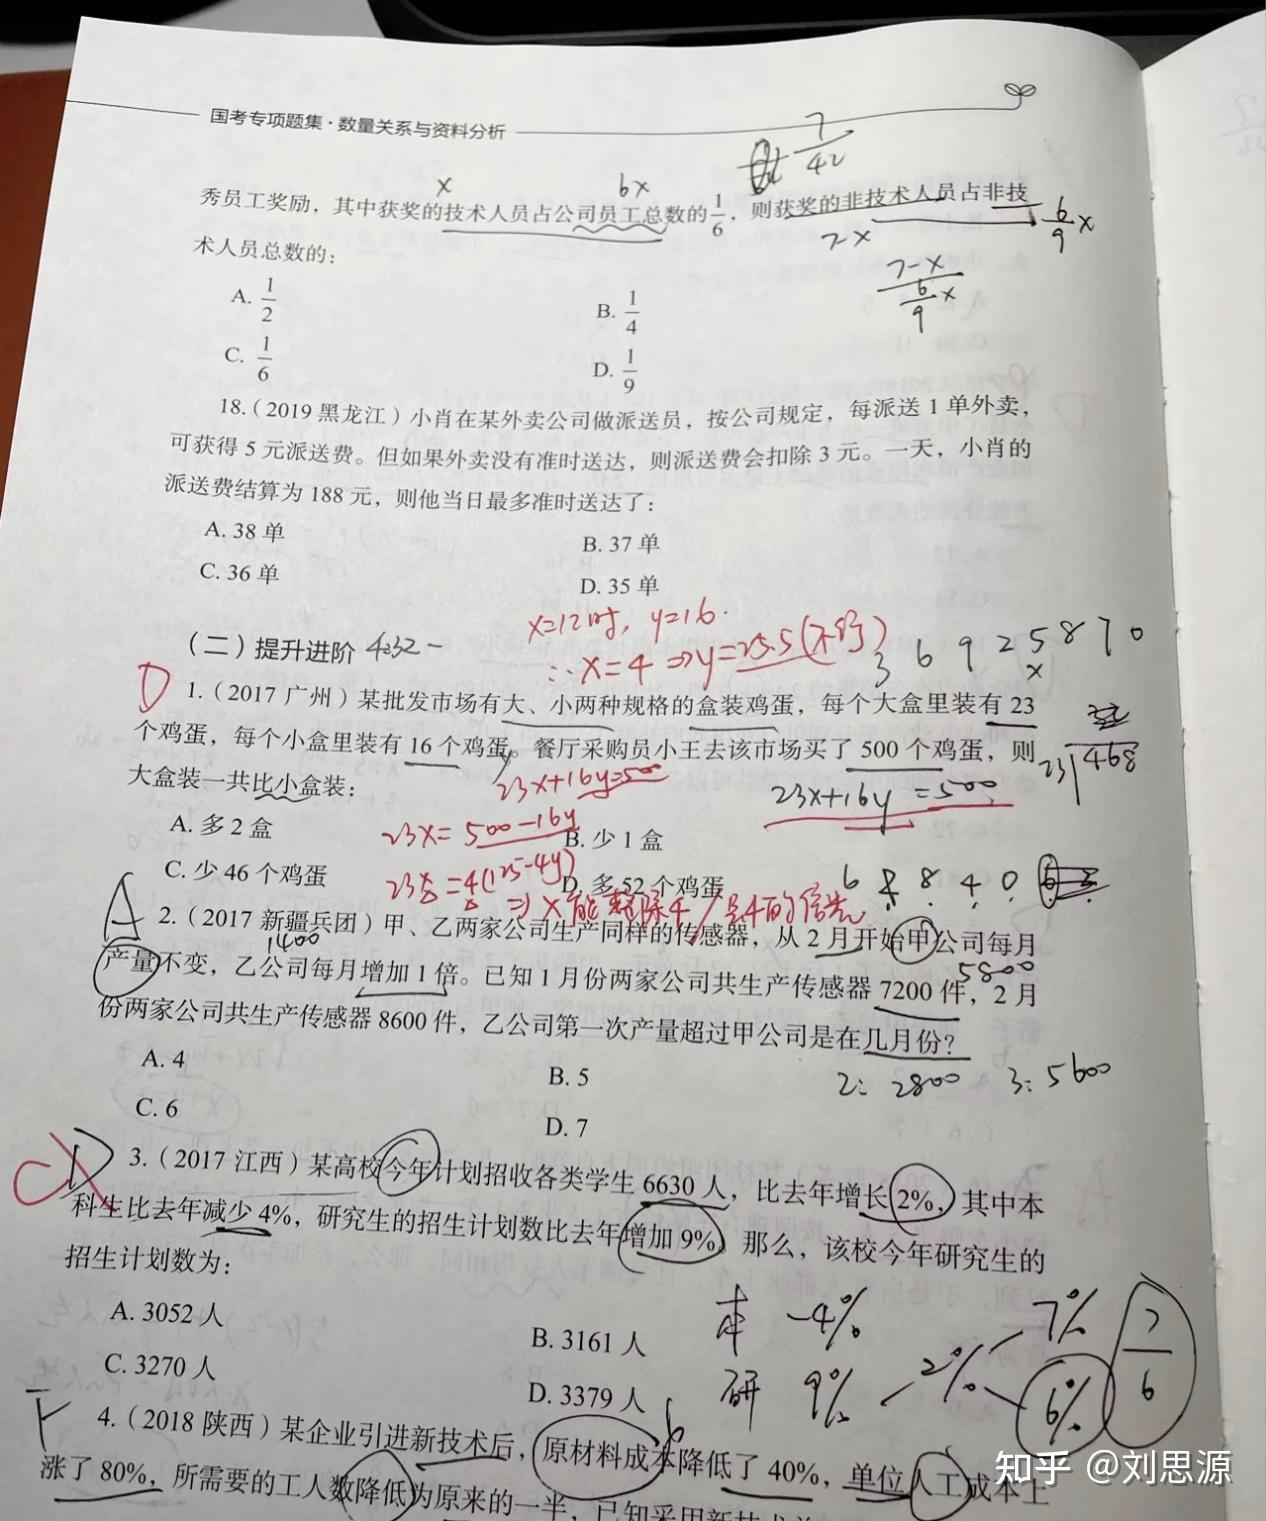 国考专项题集·数量关系与资料分析
7/42
x
6x
秀员工奖励，其中获奖的技术人员占公司员工总数的1/6，则获奖的非技术人员占非技
6/9 x
7-x
术人员总数的：
7-x / 6/9 x
A. 1/2
B. 1/4
C. 1/6
D. 1/9
18.（2019 黑龙江）小肖在某外卖公司做派送员，按公司规定，每派送 1 单外卖，
可获得 5 元派送费。但如果外卖没有准时送达，则派送费会扣除 3 元。一天，小肖的
派送费结算为 188 元，则他当日最多准时送达了：
A. 38 单
B. 37 单
C. 36 单
D. 35 单
x=12时，y=16.
（二）提升进阶
∴x=4 ⇒y=25.5(不行)
3 6 9 2 5 8 7 0
x
D
1.（2017 广州）某批发市场有大、小两种规格的盒装鸡蛋，每个大盒里装有 23
个鸡蛋，每个小盒里装有 16 个鸡蛋。餐厅采购员小王去该市场买了 500 个鸡蛋，则
23 468
大盒装一共比小盒装：
23x+16y=500
23x+16y=500
A. 多 2 盒
23x=500-16y
B. 少 1 盒
C. 少 46 个鸡蛋
=4(125-4y)
D. 多 52 个鸡蛋
6 8 8 4 0
⇒x能整除4/是4的倍数
A
2.（2017 新疆兵团）甲、乙两家公司生产同样的传感器，从 2 月开始甲公司每月
1400
5800
产量不变，乙公司每月增加 1 倍。已知 1 月份两家公司共生产传感器 7200 件，2 月
份两家公司共生产传感器 8600 件，乙公司第一次产量超过甲公司是在几月份？
A. 4
B. 5
2: 2800 3: 5600
C. 6
D. 7
C
D
3.（2017 江西）某高校今年计划招收各类学生 6630 人，比去年增长 2%，其中本
科生比去年减少 4%，研究生的招生计划数比去年增加 9%。那么，该校今年研究生的
招生计划数为：
A. 3052 人
B. 3161 人
本 -4%
7%
7/6
C. 3270 人
D. 3379 人
研 9%
2%
6%
4.（2018 陕西）某企业引进新技术后，原材料成本降低了 40%，单位人工成本上
涨了 80%，所需要的工人数降低为原来的一半，已知采用新技术
知乎 @刘思源